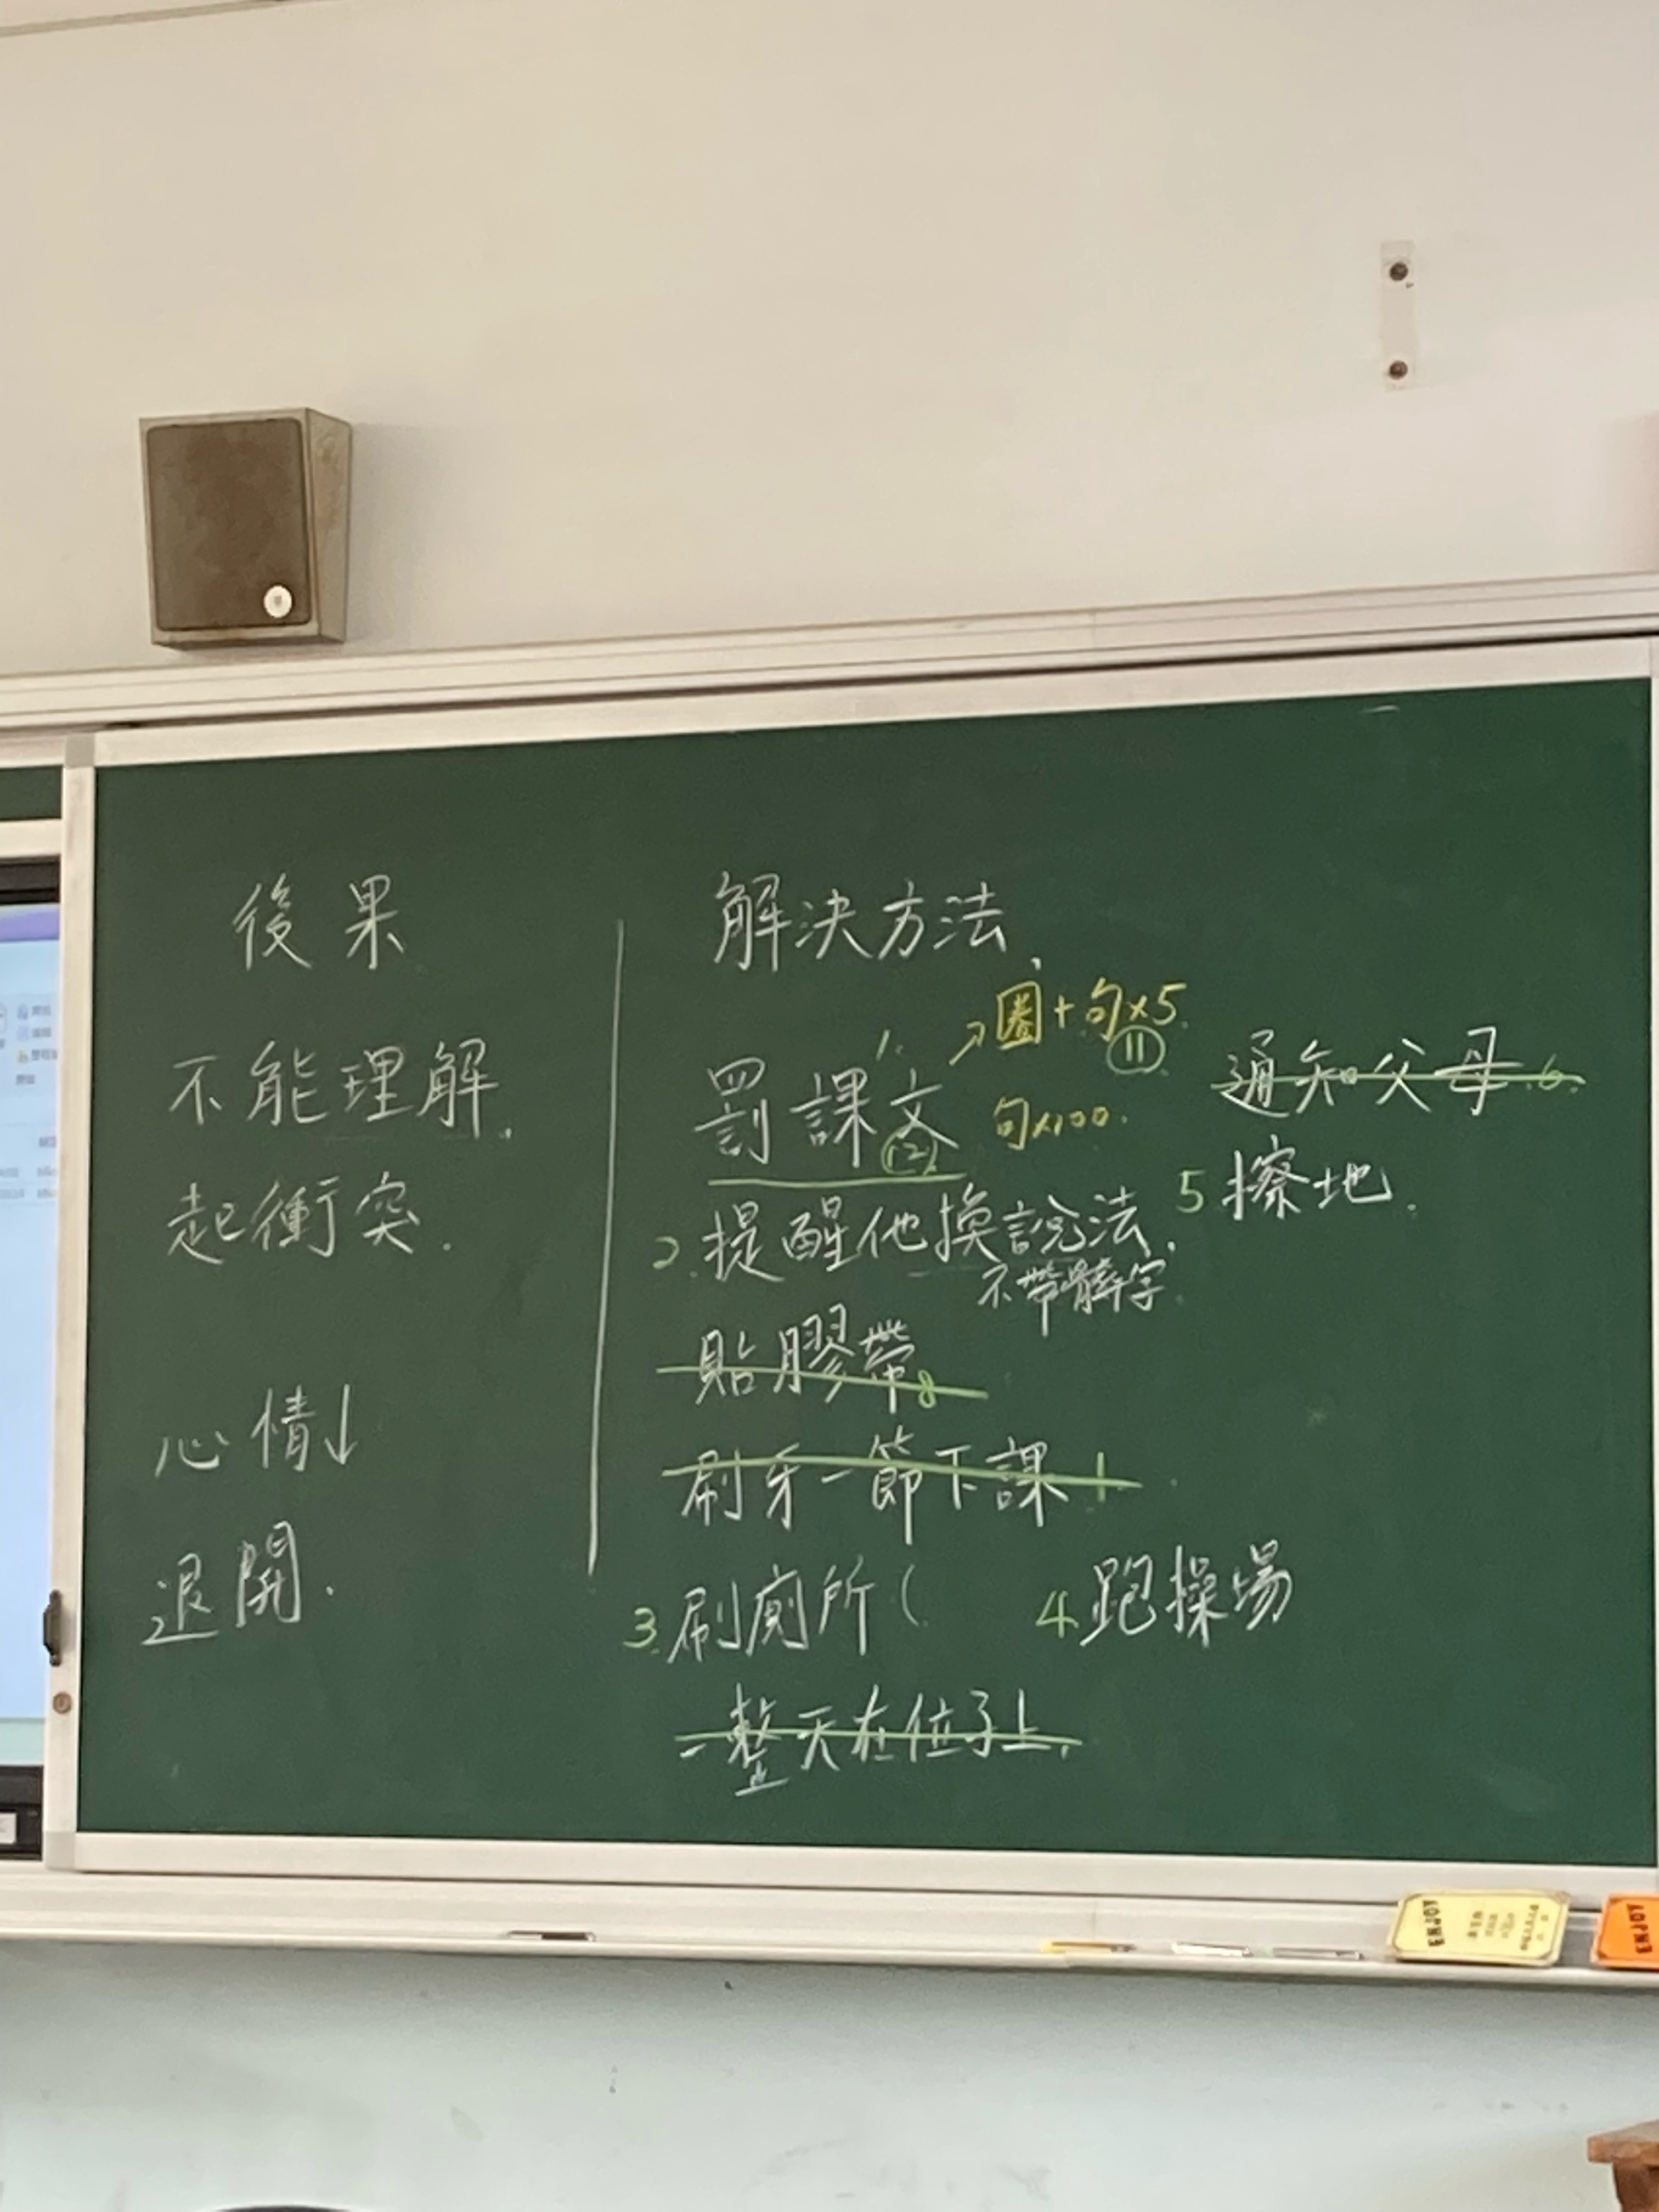 後果
不能理解.
起衝突.
心情↓
退開.
解決方法
1. ↗圈+句×5
⑪
罰課文
⑫
句×100.
通知父母 6.
2. 提醒他換說法.
不帶髒字.
5 擦地.
貼膠帶 8
刷牙一節下課 1
3. 刷廁所(
4. 跑操場
一整天在位子上.
ENJOY
ENJOY